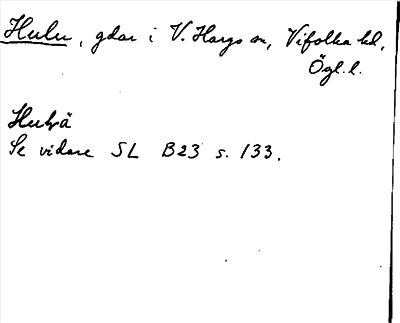 Hulu, gdar i V. Hargs sn, Vifolka hd,
Ögl. l.
Hulvä
Se vidare SL B23 s. 133.